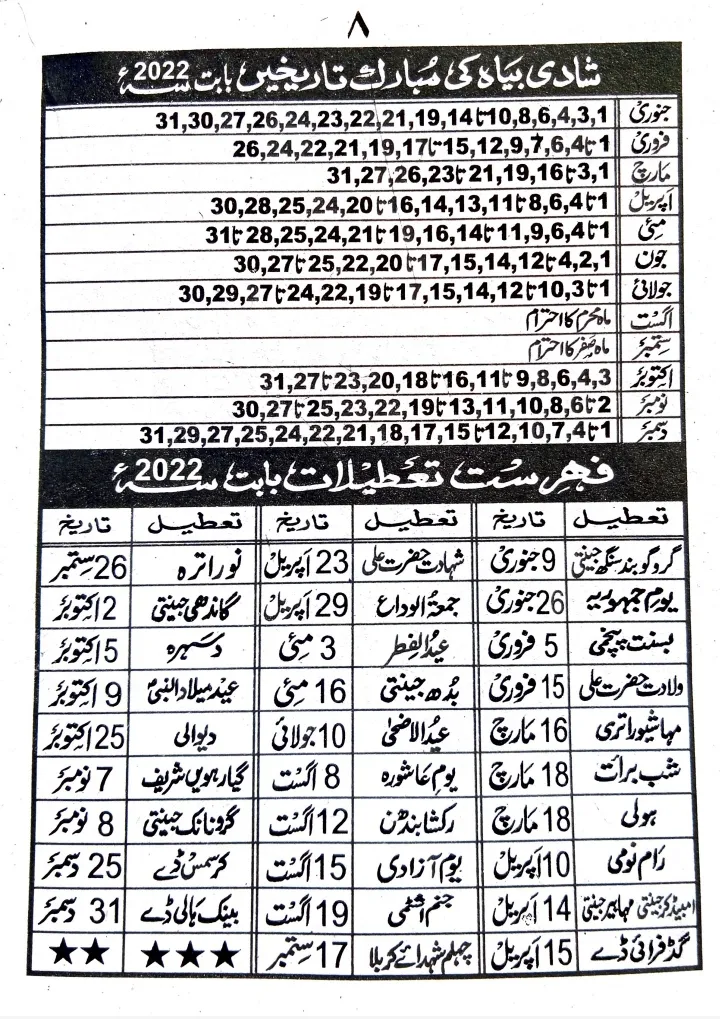 ۸
شادی بیاہ کی مُبارک تاریخیں بابت سنہ 2022ء
جنوری 1,3,4,6,8,10تا14,19,21,22,23,24,26,27,30,31
فروری 1تا4,6,7,9,12,15تا17,19,21,22,24,26
مارچ 1,3تا16,19,21تا23,26,27,31
اپریل 1تا4,6,8تا11,13,14,16تا20,24,25,28,30
مئی 1تا4,6,9,11تا14,16,19تا21,24,25,28تا31
جون 1,2,4تا12,14,15,17تا20,22,25تا27,30
جولائی 1تا3,10تا12,14,15,17تا19,22,24تا27,29,30
اگست ماہ محرم کا احترام
ستمبر ماہ صفر کا احترام
اکتوبر 3,4,6,8,9تا11,16تا18,20,23تا27,31
نومبر 2تا6,8,10,11,13تا19,22,23,25تا27,30
دسمبر 1تا4,7,10,12تا15,17,18,21,22,24,25,27,29,31
فہرست تعطیلات بابت سنہ 2022ء
تعطیل تاریخ تعطیل تاریخ تعطیل تاریخ
گروگوبندسنگھ جینتی 9 جنوری شہادت حضرت علی 23 اپریل نوراترہ 26 ستمبر
یوم جمہوریہ 26 جنوری جمعۃ الوداع 29 اپریل گاندھی جینتی 2 اکتوبر
بسنت پنچمی 5 فروری عیدالفطر 3 مئی دسہرہ 5 اکتوبر
ولادت حضرت علی 15 فروری بُدھ جینتی 16 مئی عید میلادالنبیؐ 9 اکتوبر
مہاشیوراتری 16 مارچ عیدالاضحیٰ 10 جولائی دیوالی 25 اکتوبر
شب برات 18 مارچ یوم عاشورہ 8 اگست گیارہویں شریف 7 نومبر
ہولی 18 مارچ رکشابندھن 12 اگست گرونانک جینتی 8 نومبر
رام نومی 10 اپریل یوم آزادی 15 اگست کرسمس ڈے 25 دسمبر
امبیڈکر جینتی مہابیر جینتی 14 اپریل جنم اشٹمی 19 اگست بینک ہالی ڈے 31 دسمبر
گڈفرائی ڈے 15 اپریل چہلم شہدائے کربلا 17 ستمبر ★★★ ★★